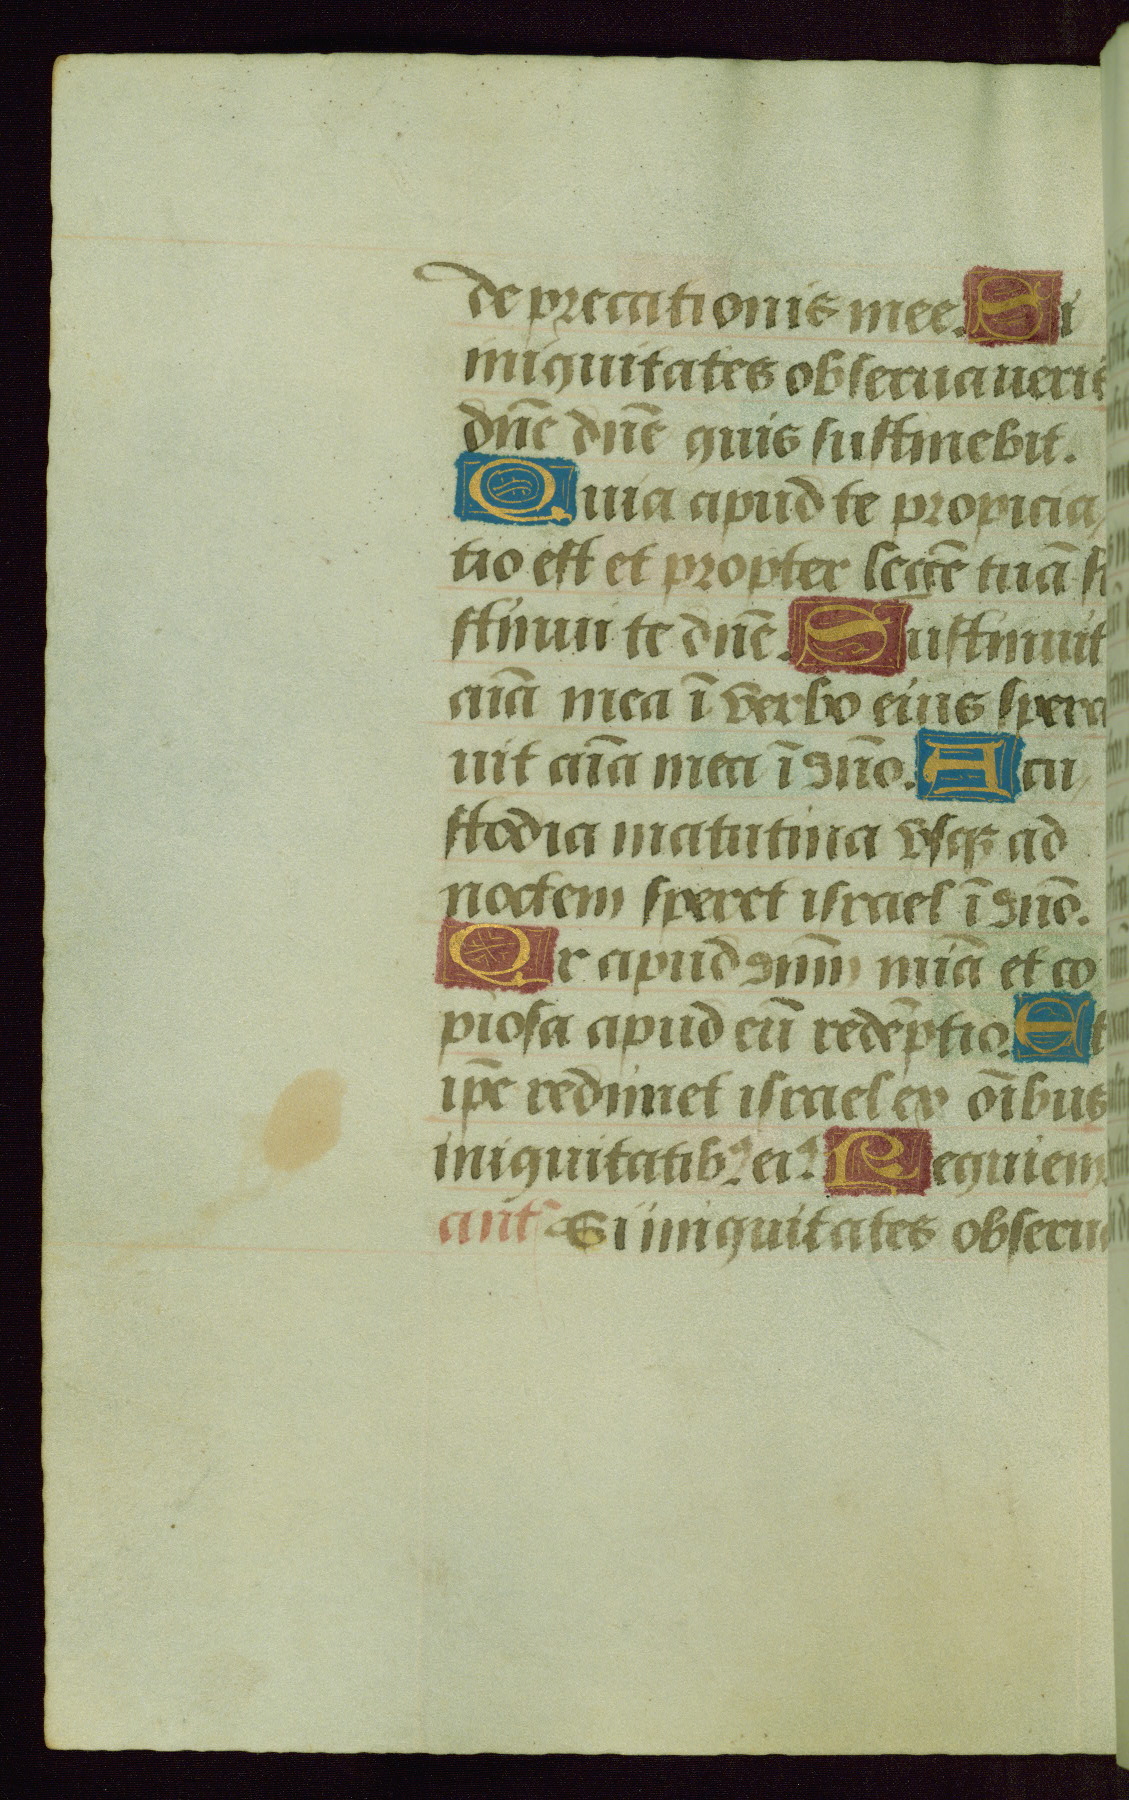 deprecationis mee. Si
iniquitates obseruaueris
dn̄e dn̄e quis sustinebit.
Quia apud te propicia
tio est et propter legē tuā su
stinui te dn̄e. Sustinuit
aīa mea ī verbo eius spera
uit aīa mea ī dn̄o. A cu
stodia matutina vsqꝫ ad
noctem speret israel ī dn̄o.
Qr apud dn̄m mīa et co
piosa apud eū redēptio. Et
ip̄e redimet israel ex oībus
iniquitatibꝰ eiꝰ. Requiem.
ant' Si iniquitates obserua